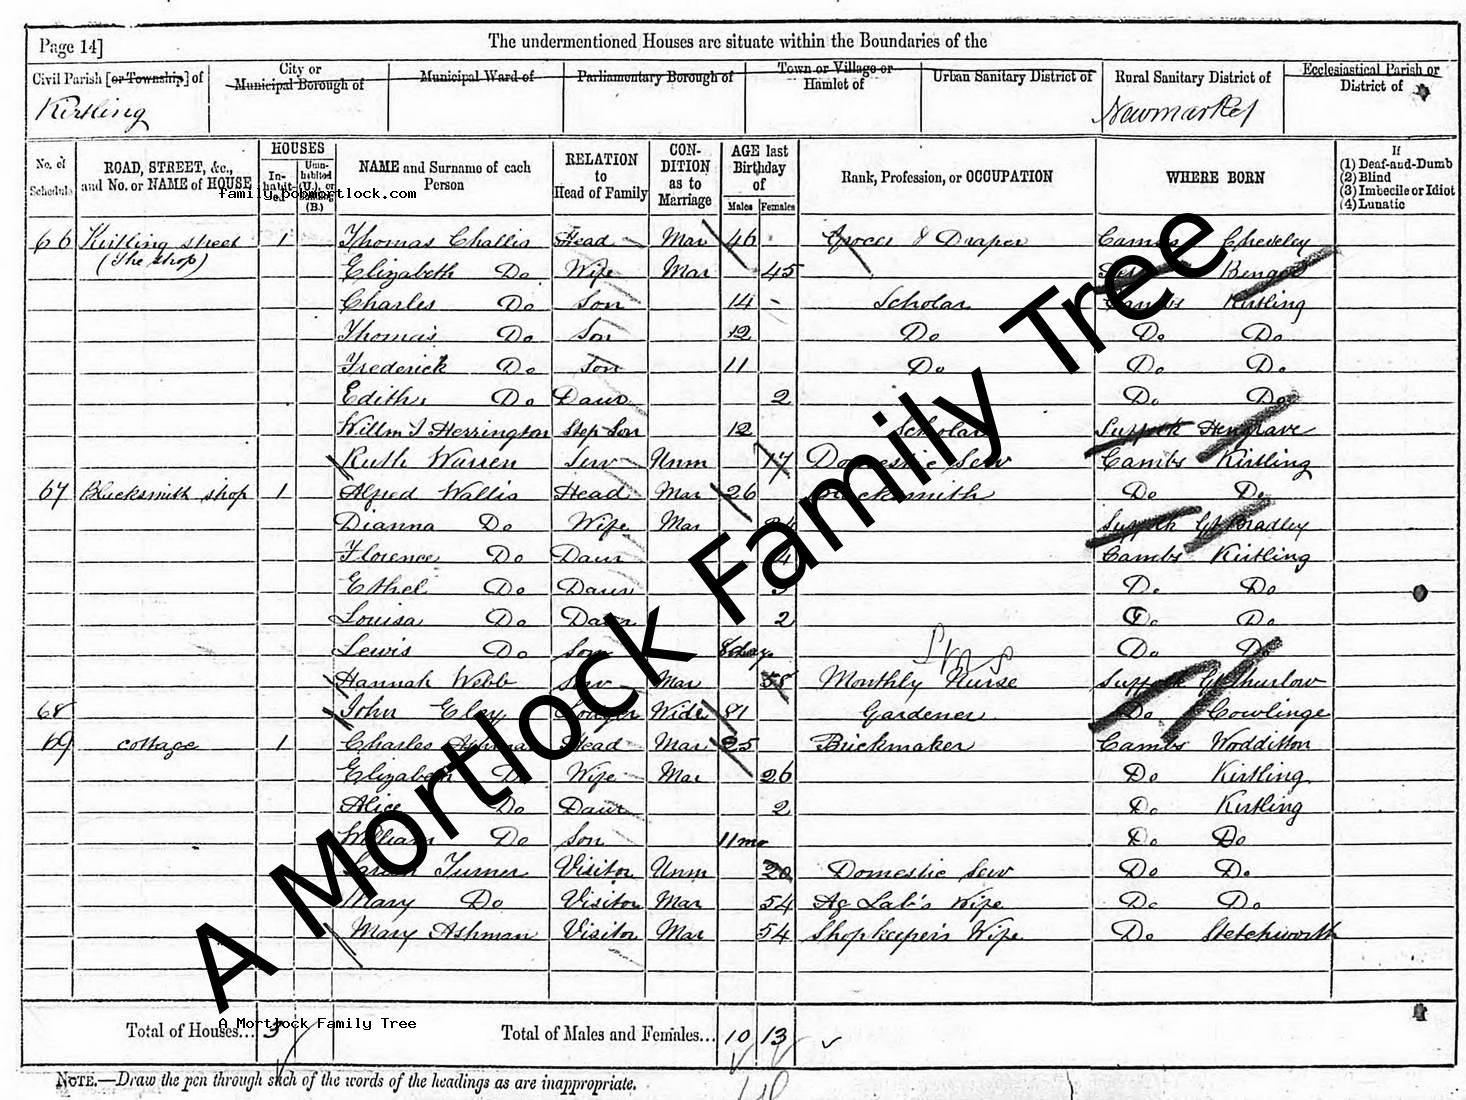 Page 14] The undermentioned Houses are situate within the Boundaries of the
Civil Parish [or Township] of City or Municipal Borough of Municipal Ward of Parliamentary Borough of Town or Village or Hamlet of Urban Sanitary District of Rural Sanitary District of Ecclesiastical Parish or District of
Kirtling Newmarket
No. of Schedule ROAD, STREET, &c., and No. or NAME of HOUSE HOUSES In-habit-ed Unin-habited (U.), or Building (B.) NAME and Surname of each Person RELATION to Head of Family CON-DITION as to Marriage AGE last Birthday of Males Females Rank, Profession, or OCCUPATION WHERE BORN If (1) Deaf-and-Dumb (2) Blind (3) Imbecile or Idiot (4) Lunatic
family.bobmortlock.com
66 Kirtling street 1 Thomas Challis Head Mar 46 Grocer & Draper Cambs Cheveley
(The shop)
Elizabeth Do Wife Mar 45
Charles Do Son 14 Scholar Cambs Kirtling
Thomas Do Son 12 Do Do Do
Frederick Do Son 11 Do Do Do
Edith Do Daur 2 Do Do
Willm J Herrington Step Son 12 Scholar Suffolk Hengrave
Ruth Warren Serv Unm 17 Domestic Serv Cambs Kirtling
67 Blacksmith shop 1 Alfred Wallis Head Mar 26 Blacksmith Do Do
Dianna Do Wife Mar Suffolk Gt Bradley
Florence Do Daur 4 Cambs Kirtling
Ethel Do Daur Do Do
Louisa Do Daur 2 Do Do
Lewis Do Son days Do Do
Hannah Webb Serv Mar 58 Monthly Nurse Suffolk Gt Thurlow
68 John Eley Lodger Widr 81 Gardener Do Cowlinge
69 cottage 1 Charles Ashman Head Mar 25 Brickmaker Cambs Woodditton
Elizabeth Do Wife Mar 26 Do Kirtling
Alice Do Daur 2 Do Kirtling
William Do Son 11 mo Do Do
Sarah Turner Visitor Unm 20 Domestic Serv Do Do
Mary Do Visitor Mar 54 Ag Lab's Wife Do Do
Mary Ashman Visitor Mar 54 Shopkeeper's Wife Do Stetchworth
Total of Houses... 3 Total of Males and Females... 10 13
A Mortlock Family Tree
NOTE.—Draw the pen through such of the words of the headings as are inappropriate.
A Mortlock Family Tree